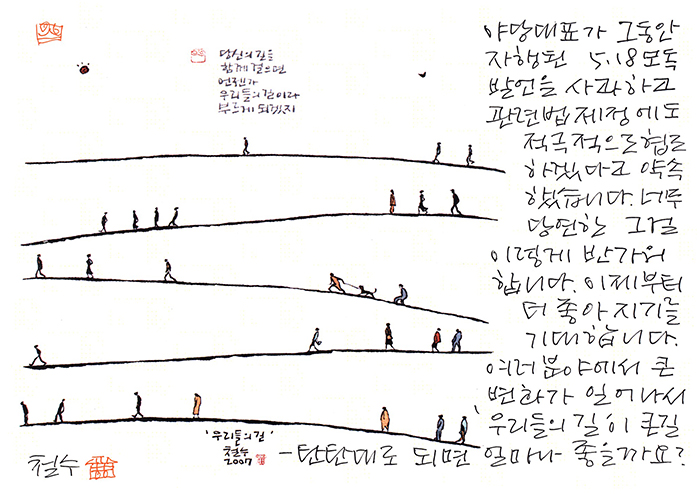 당신의 길을
함께 걸으면
언젠가
우리들의 길이라
부르게 되겠지
야당대표가 그동안
자행된 5.18모독
발언을 사과하고
관련법 제정에도
적극적으로 협조
하겠다고 약속
했습니다. 너무
당연한 그걸
이렇게 반가워
합니다. 이제부터
더 좋아지기를
기대합니다.
여러분야에서 큰
변화가 일어나서
'우리들의 길'이 큰길
- 탄탄대로 되면 얼마나 좋을까요?
'우리들의 길'
철수
2007
철수